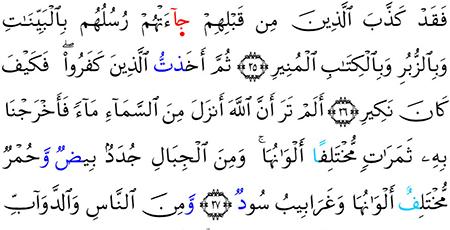 فَقَدْ كَذَّبَ الَّذِينَ مِن قَبْلِهِمْ جَآءَتْهُمْ رُسُلُهُم بِالْبَيِّنَاتِ
وَبِالزُّبُرِ وَبِالْكِتَابِ الْمُنِيرِ ﴿٢٥﴾ ثُمَّ أَخَذتُّ الَّذِينَ كَفَرُوا۟ ۖ فَكَيْفَ
كَانَ نَكِيرِ ﴿٢٦﴾ أَلَمْ تَرَ أَنَّ اللَّهَ أَنزَلَ مِنَ السَّمَآءِ مَآءً فَأَخْرَجْنَا
بِهِۦ ثَمَرَٰتٍ مُّخْتَلِفًا أَلْوَٰنُهَا ۚ وَمِنَ الْجِبَالِ جُدَدٌۢ بِيضٌ وَحُمْرٌ
مُّخْتَلِفٌ أَلْوَٰنُهَا وَغَرَابِيبُ سُودٌ ﴿٢٧﴾ وَمِنَ النَّاسِ وَالدَّوَآبِّ